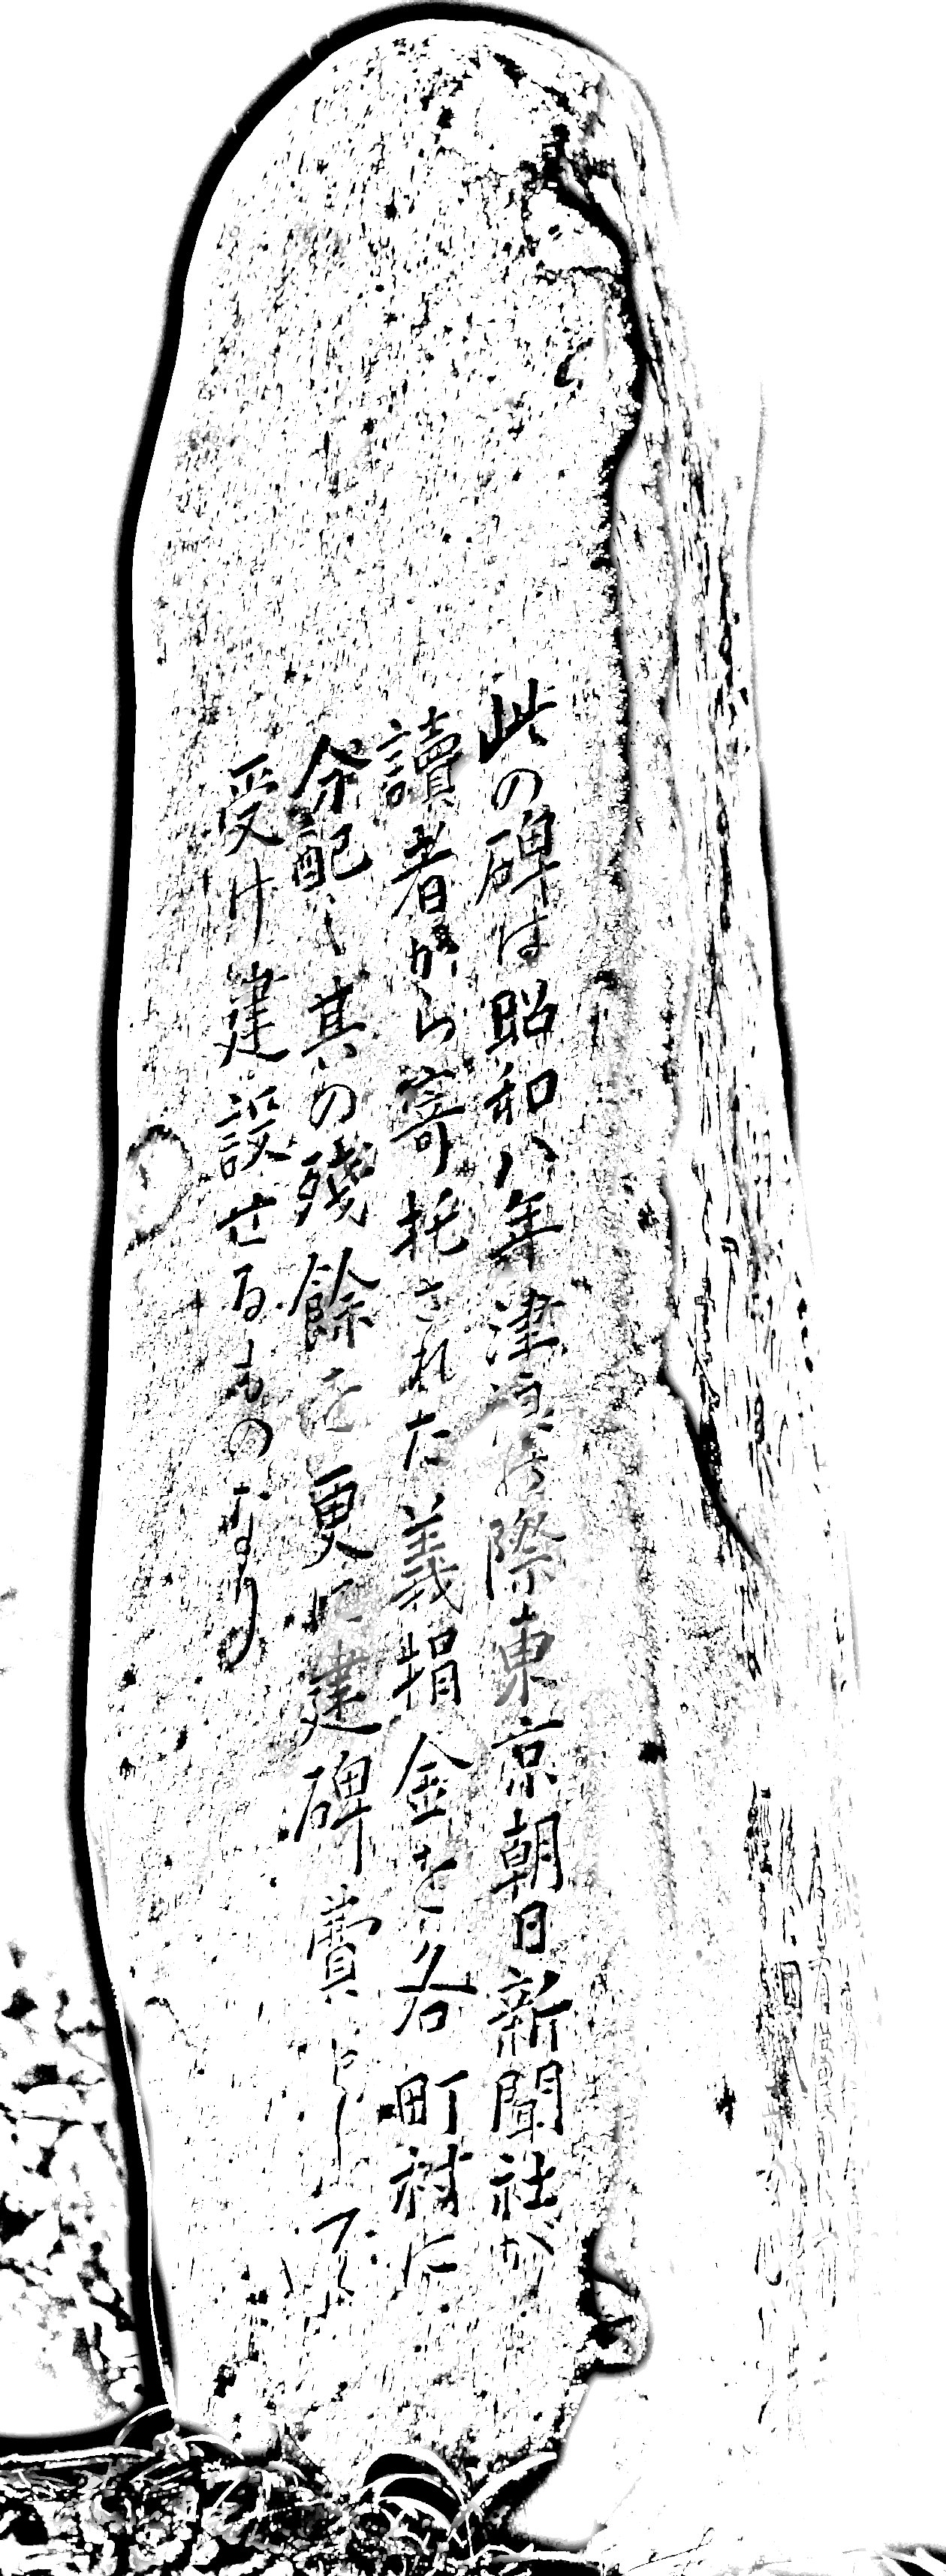 此の碑は昭和八年津浪の際東京朝日新聞社が
讀者から寄托された義捐金を各町村に
分配し其の残餘を更に建碑費として
受け建設せるものなり